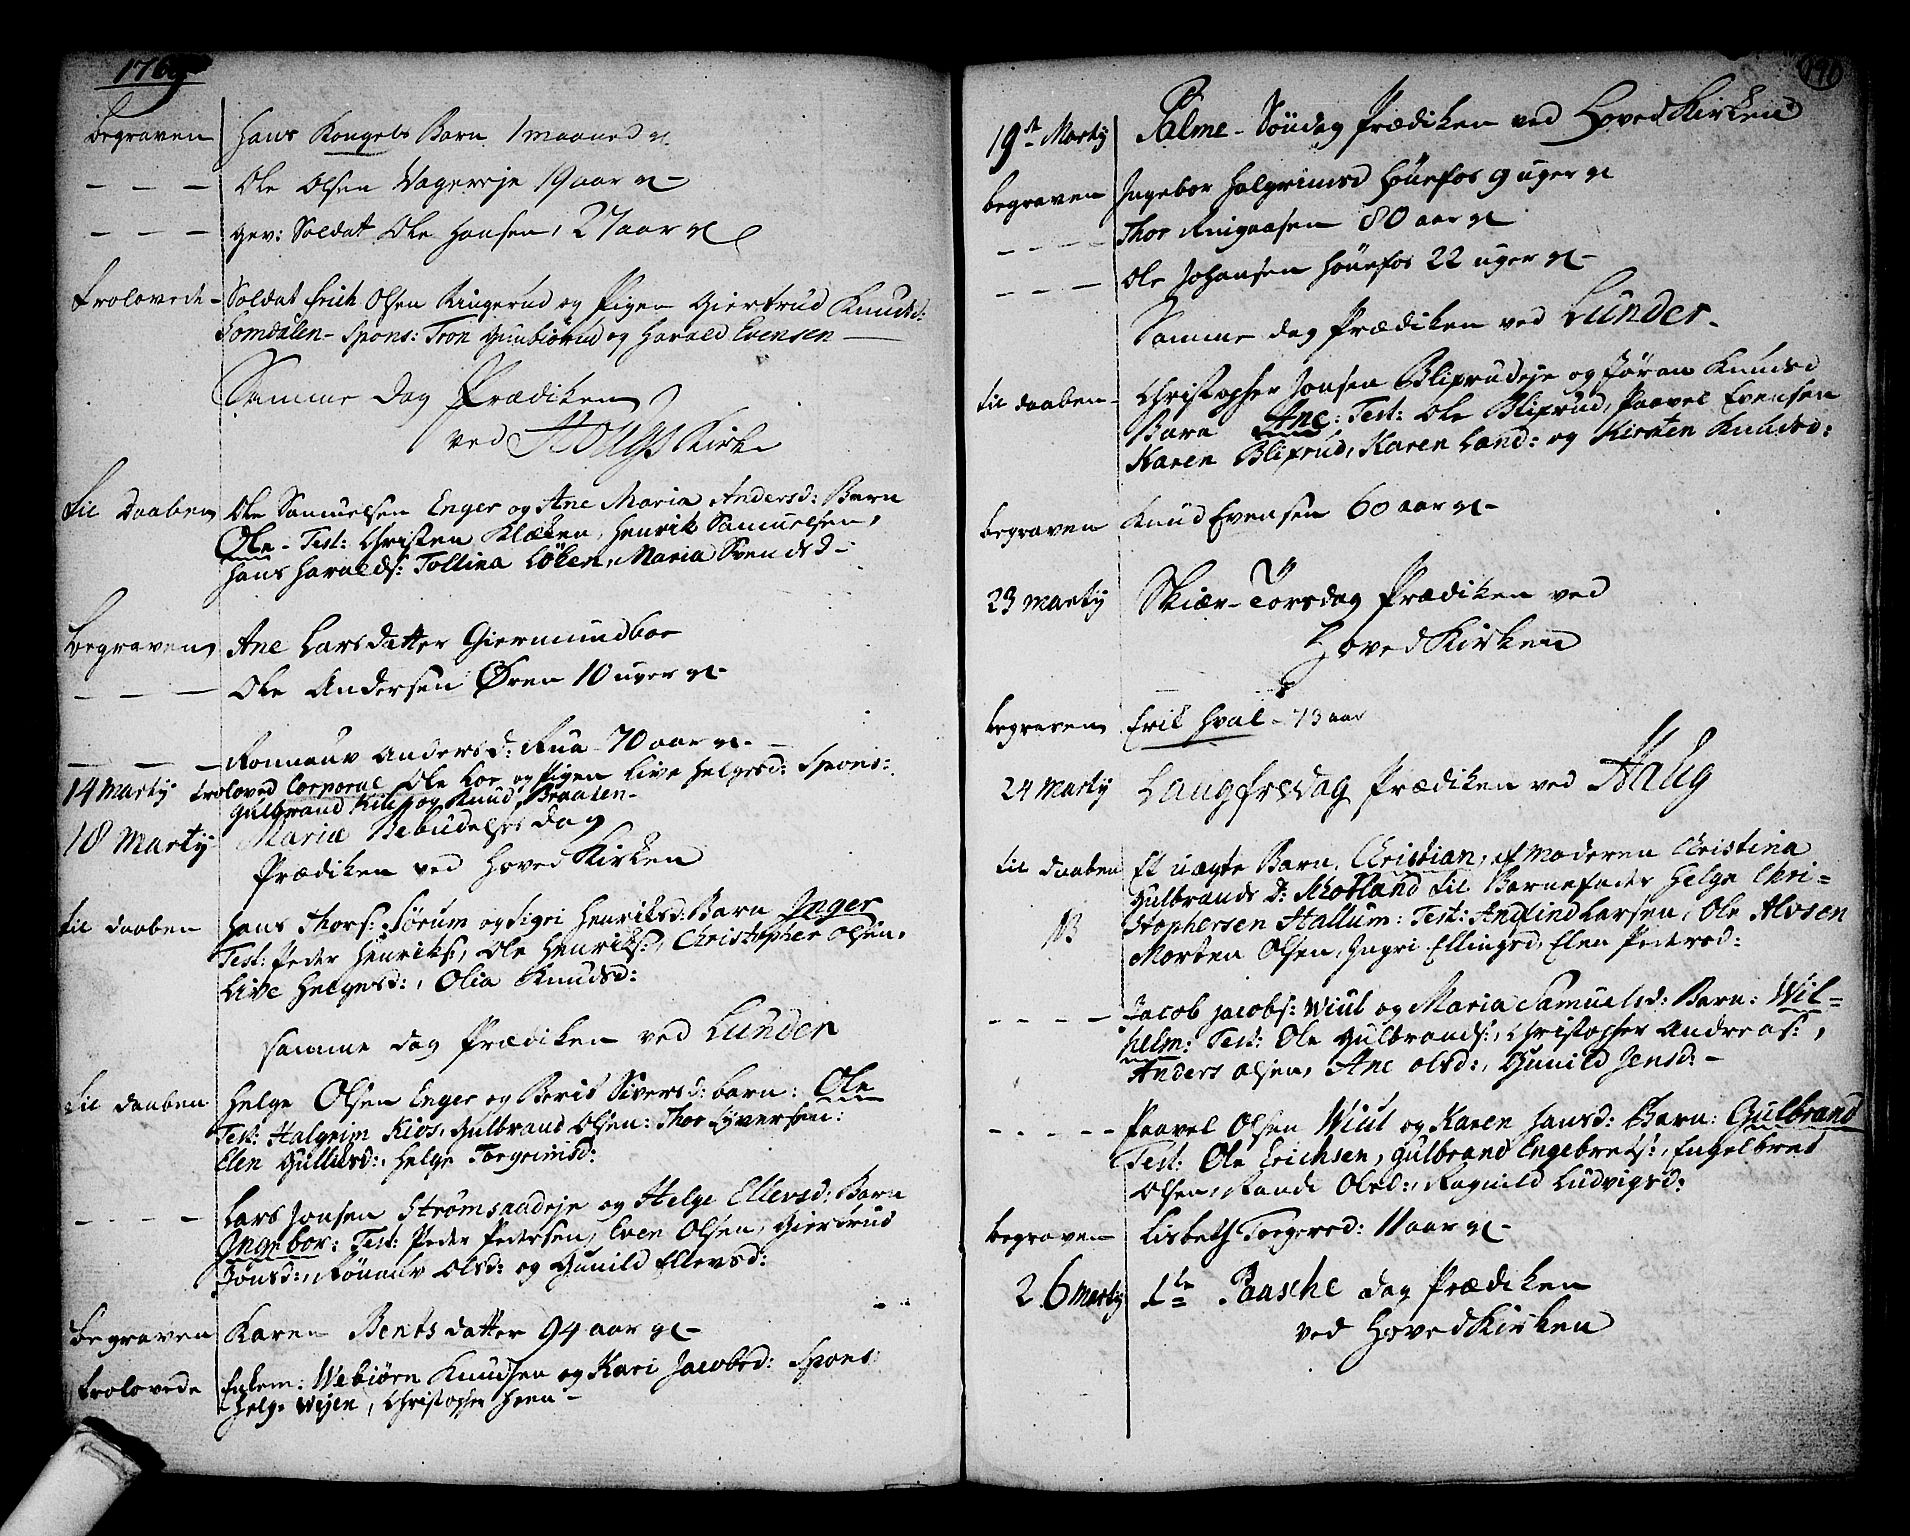 1769
begraven Hans Kongels Barn 1 maaned gl
- - - Ole Olsen Vagereje 19 aar gl -
- - - Gev: Soldat Ole Hansen, 27 aar gl
Trolovede - Soldat Erich Olsen Ringerud og Pigen Giertrud Knudsd:
Somdalen - Spons: Tron Gunbiørud og Harald Evensen
Samme Dag Prædiken
ved Hougs Kirke
til Daaben Ole Samuelsen Enger og Ane Maria Andersd: Barn
Ole - Test: Christen Klæken, Henrik Samuelsen,
Hans Haralds: Tollina Løken, Maria Svendsd -
Begraven Ane Larsdatter Giermundboe
- - - Ole Andersen Øren 10 uger gl -
- - - Ronnauv Andersd: Rua - 70 aar gl -
14 Marty troloved Corporal Ole Loe og Pigen Live Helgesd: Spons:
Gulbrand og Knud Braaten -
18 Marty Mariæ Bebudelses dag
Prædiken ved Hoved Kirken
til daaben Hans Thors: Sørum og Sigri Henriksd: Barn Inger
Test: Peder Henriks:, Ole Henriks:, Christopher Olsen,
Live Helgesd:, Olia Knudsd:
samme dag Prædiken ved Lunder
til daaben Helge Olsen Enger og Berit Siversd: barn: Ole
Test: Halgrim Kios, Gulbrand Olsen: Thor Syversen:
Elen Gullusd:, Helge Torgrimsd:
- - - - Lars Jonsen Strømsaadeje og Helge Ellevsd: Barn
Ingebor: Test: Peder Pedersen, Even Olsen, Giertrud
Jonsd:, Rønnauv Olsd: og Gunild Ellevsd:
begraven Karen Bentsdatter 94 aar gl -
trolovede Enkem: Webiørn Knudsen og Kari Jacobsd: Spons:
Helge Wejen, Christopher Heen -
190
19de Marty Palme - Søndag Prædiken ved Hoved Kirken
begraven Ingebor Halgrimsd Hønefos 9 uger gl
- - - - Thor Ringaasen 80 aar gl
- - - - Ole Johansen Hønefos 22 uger gl -
Samme dag Prædiken ved Lunder -
til daaben - Christopher Jonsen Blixrudeje og Jøran Knudsd
Barn Ane: Test: Ole Blixrud, Paavel Evensen
Karen Blixrud, Karen Land: og Kirsten Knudsd:
begraven Knud Evensen 60 aar gl -
23 Marty Skiær - Torsdag Prædiken ved
Hoved Kirken
begraven Erik Hval - 73 aar
24 Marty Langfredag Prædiken ved Haug
til daaben Et uægte Barn, Christian, af moderen Christina
Gulbrands D: Skotland til Barnefader Helge Chri=
stophersen Hallum: Test: Anglind Larsen, Ole Alvsen
Morten Olsen, Ingri Ellingsd, Elen Pedersd:
- - - - Jacob Jacobs: Wiul og Maria Samuelsd: Barn: Wil=
helm: Test: Ole Gulbrands:, Christopher Andreas:,
Anders Olsen, Ane Olsd:, Gunild Jensd: -
- - - - - Paavel Olsen Wiul og Karen Hansd: Barn: Gulbrand
Test: Ole Erichsen, Gulbrand Engebrets:, Engelbret
Olsen, Randi Olsd:, Ragnild Ludvigsd:
begraven Lisbeth Torgersd: 11 aar gl -
26 Marty 1te Paasche dag Prædiken
ved Hoved Kirken